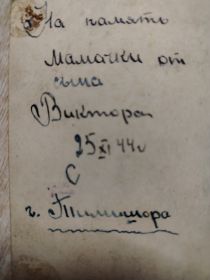 На память
Мамочки от
сына
Виктора
25 XI 44 г
С
г. Тимишора